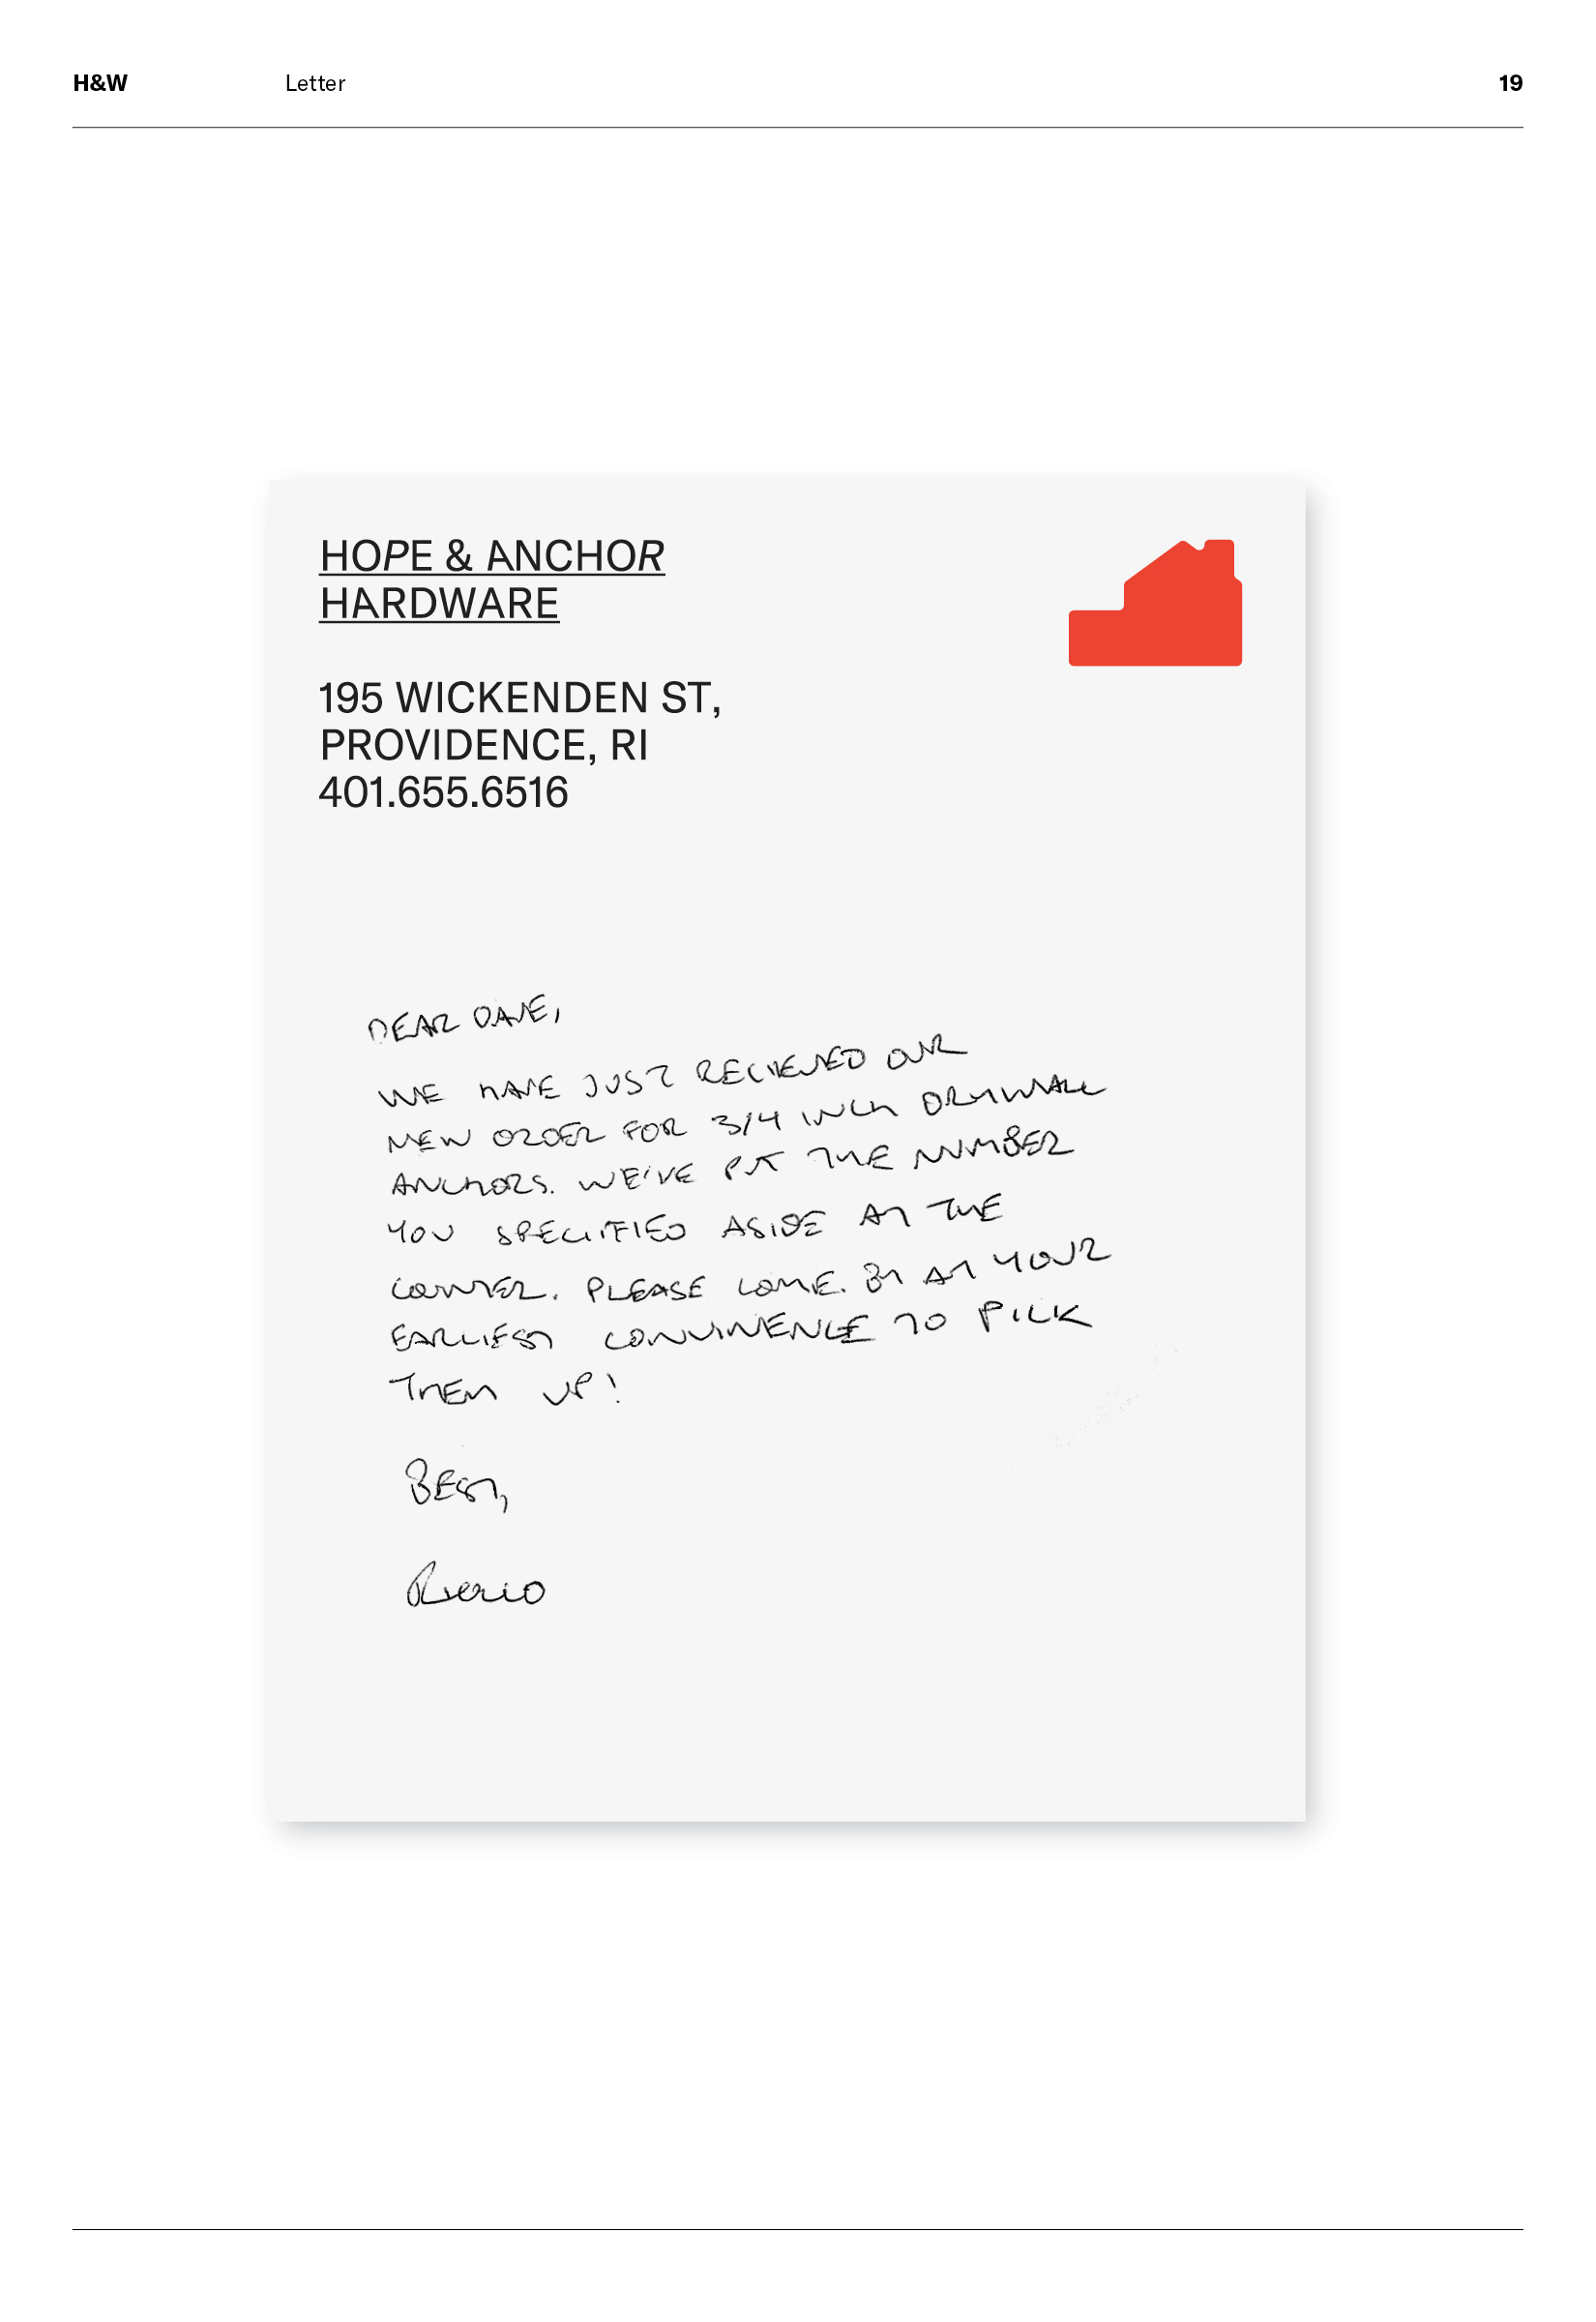 H&W Letter 19
HOPE & ANCHOR
HARDWARE
195 WICKENDEN ST,
PROVIDENCE, RI
401.655.6516
DEAR DAVE,
WE HAVE JUST RECIEVED OUR
NEW ORDER FOR 3/4 INCH DRYWALL
ANCHORS. WE'VE PUT THE NUMBER
YOU SPECIFIED ASIDE AT THE
COUNTER. PLEASE COME. BY AT YOUR
EARLIEST CONVINIENCE TO PICK
THEM UP!
BEST,